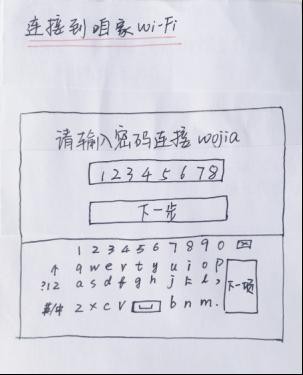 连接到咱家Wi-Fi
请输入密码连接wojia
12345678
下一步
1 2 3 4 5 6 7 8 9 0
↑ q w e r t y u i o p
?12 a s d f g h j k l ,
英/中 z x c v b n m .
下一项